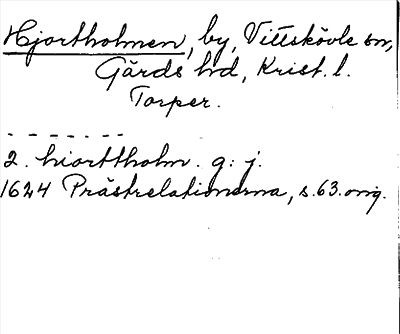 Hjortholmen, by, Vittskövle sn,
Gärds hd, Krist. l.
Torper.
- - - - - - -
2. hiorttholm. g: j.
1624 Prästrelationerna, s. 63. orig.